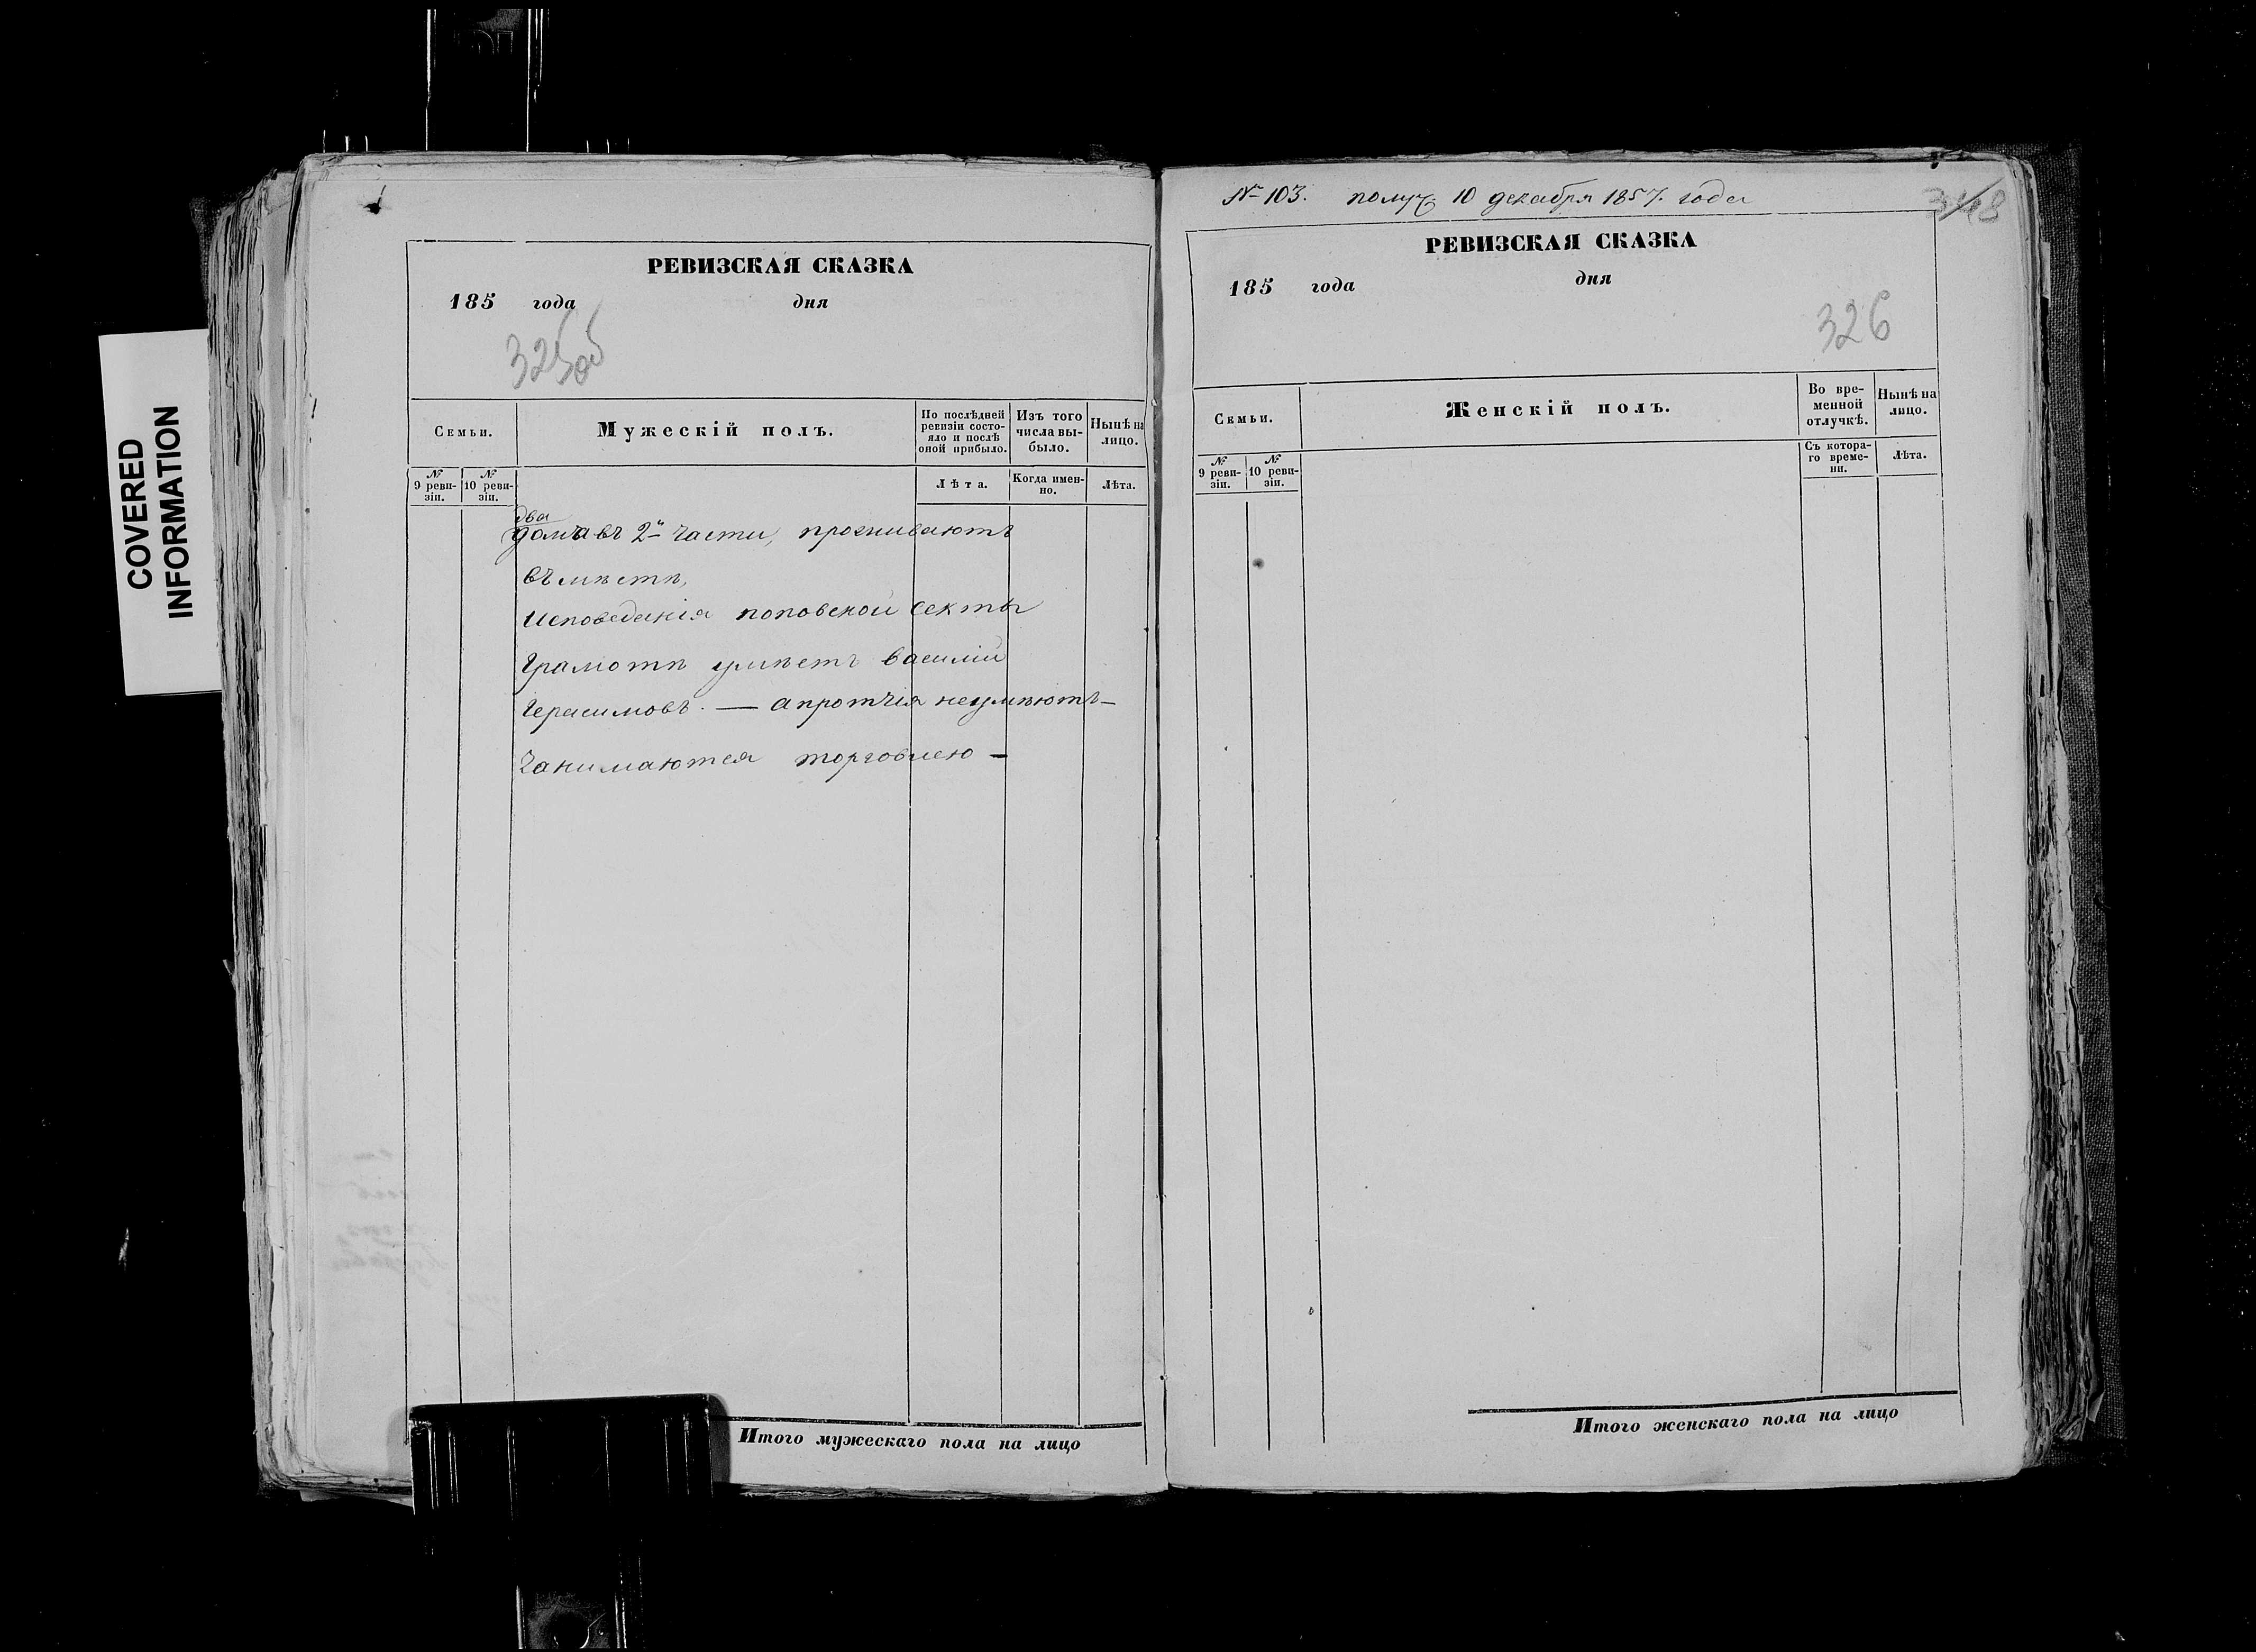 COVERED
INFORMATION
РЕВИЗСКАЯ СКАЗКА
185 года дня
325об
Семьи.
Мужескій полъ.
По послѣдней
ревизіи состо-
яло и послѣ
оной прибыло.
Изъ того
числа вы-
было.
Нынѣ на
лицо.
№
9 реви-
зіи.
№
10 реви-
зіи.
Лѣта.
Когда имен-
но.
Лѣта.
два
дома въ 2й части, проживаютъ
въ мѣстѣ,
Исповеданія поповской секты
Грамотѣ умѣетъ василій
Герасимовъ. — а протчія неумѣютъ —
Занимаются торговлею —
Итого мужескаго пола на лицо
№ 103. получ. 10 декабря 1857. года
348
РЕВИЗСКАЯ СКАЗКА
185 года дня
326
Семьи.
Женскій полъ.
Во вре-
менной
отлучкѣ.
Нынѣ на
лицо.
№
9 реви-
зіи.
№
10 реви-
зіи.
Съ котора-
го време-
ни.
Лѣта.
Итого женскаго пола на лицо